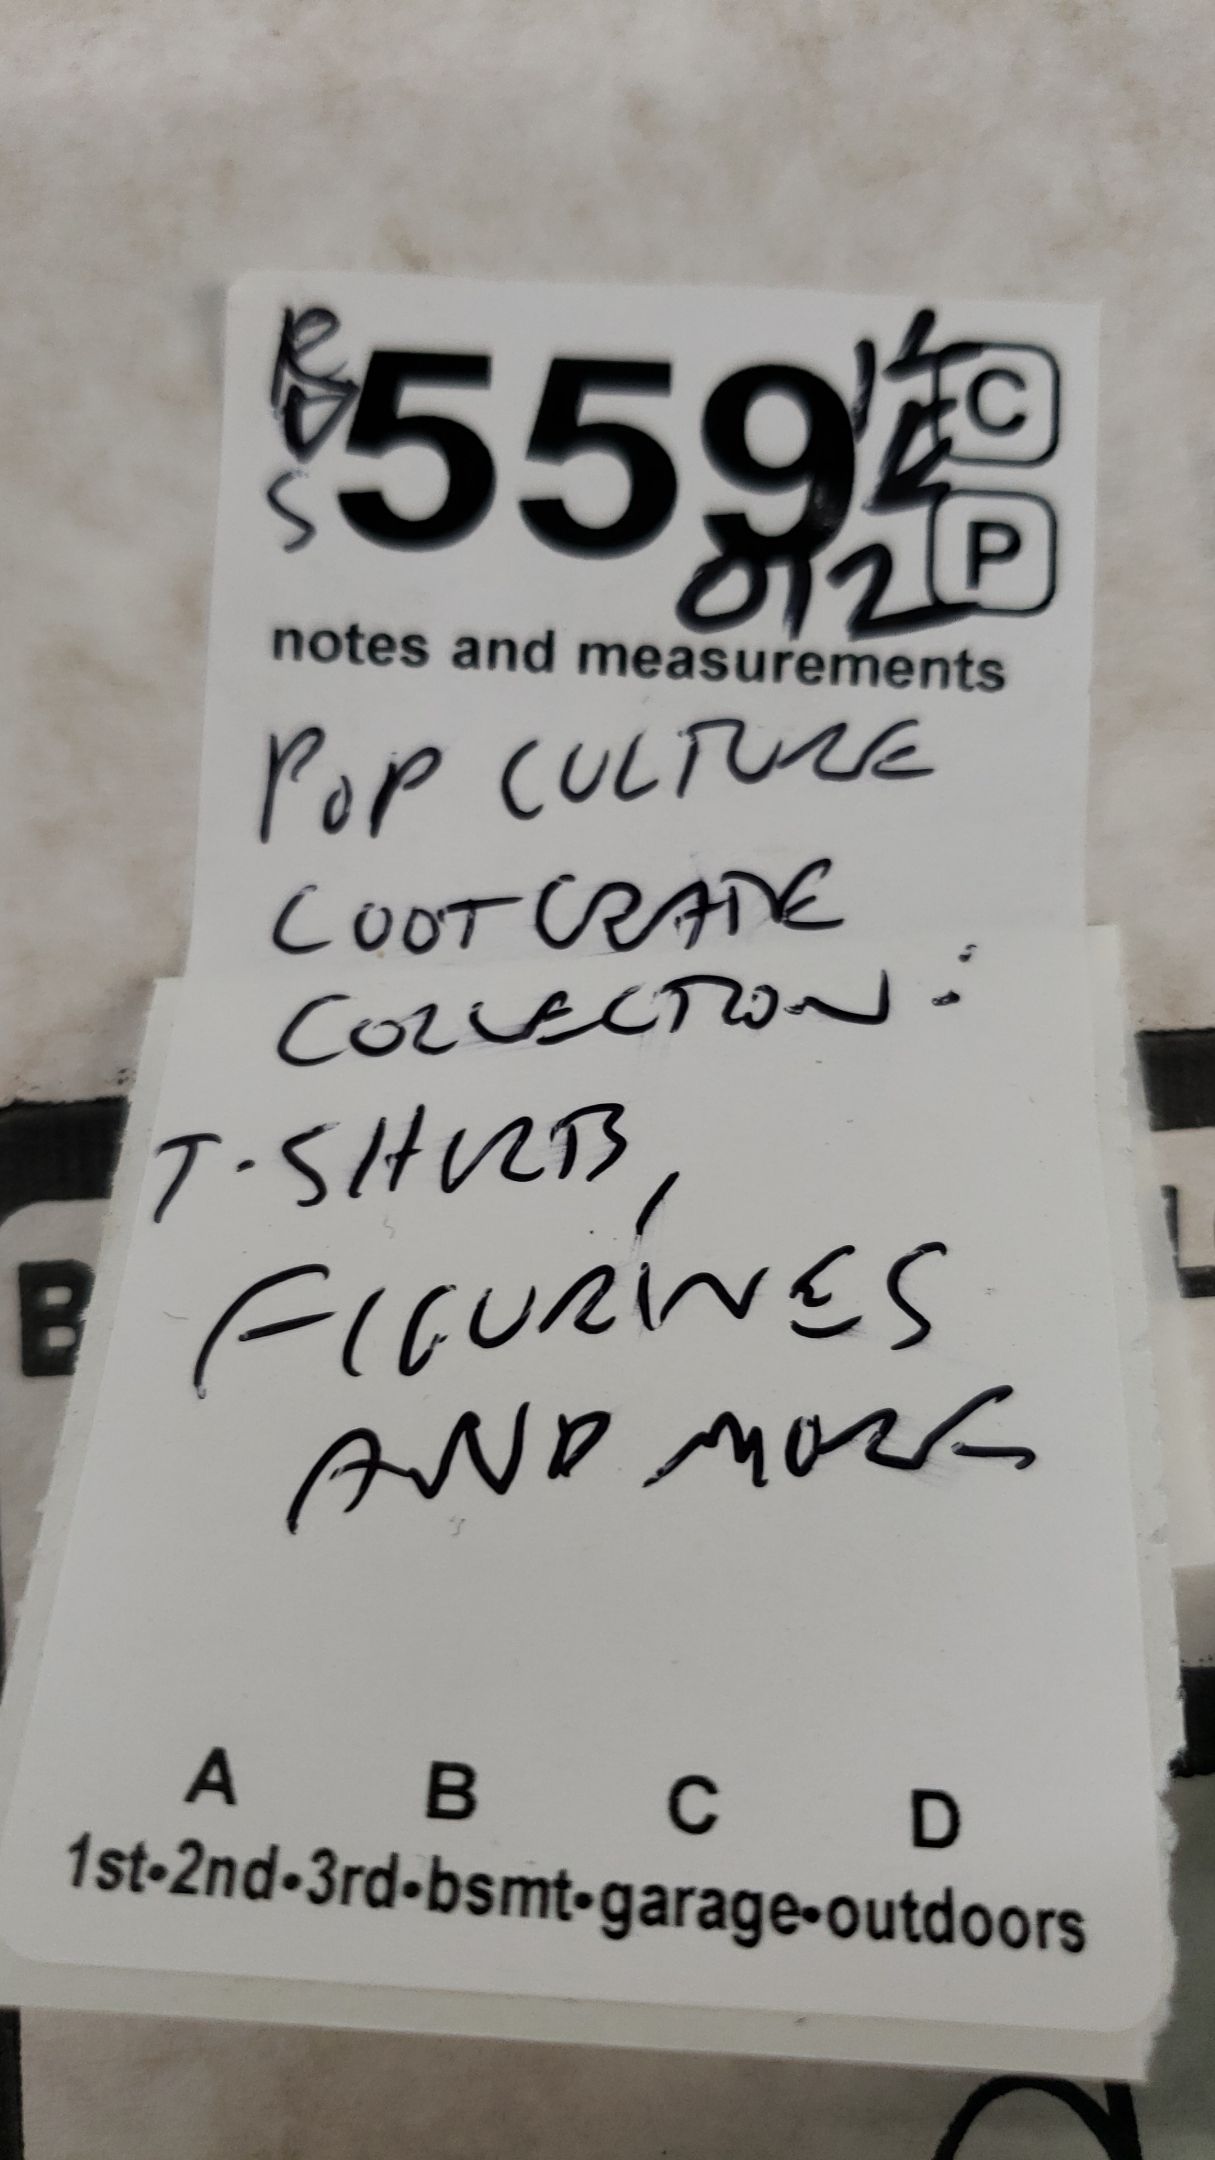 RDS 559 C
P
012
notes and measurements
POP CULTURE
LOOTCRATE
COLLECTION:
T-SHIRTS,
FIGURINES
AND MORE
B
A B C D
1st•2nd•3rd•bsmt•garage•outdoors